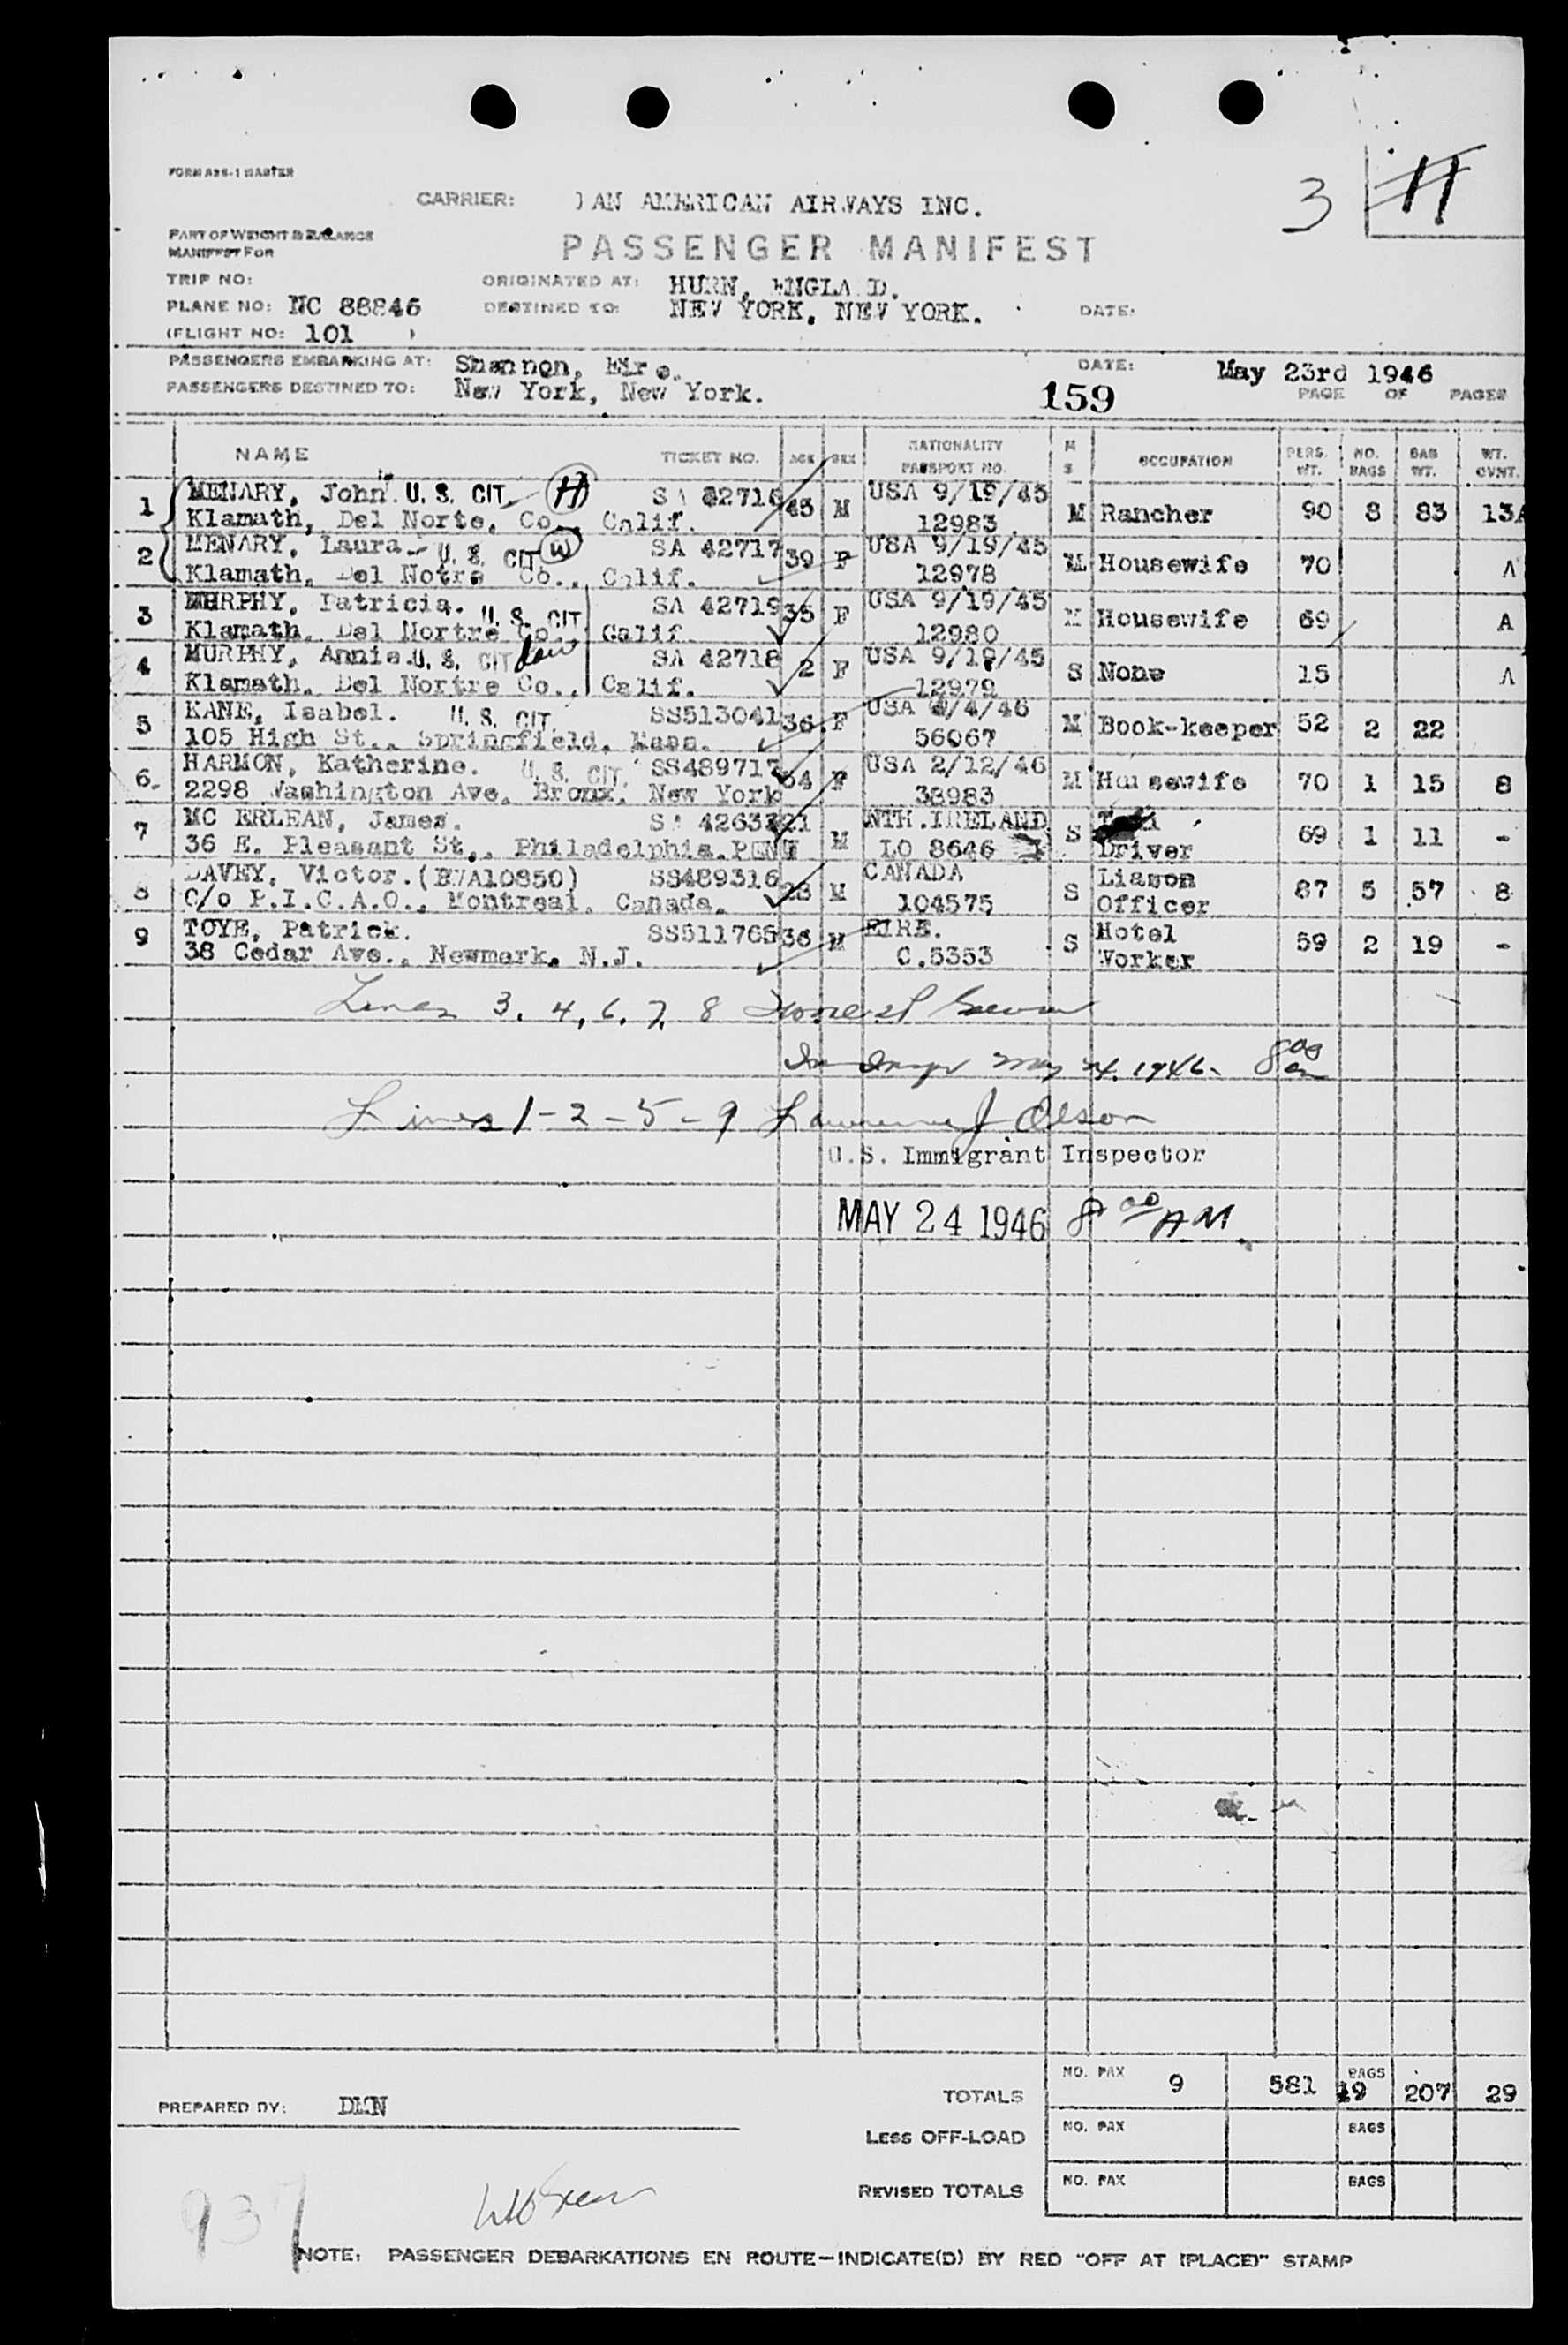 FORM A28-1 MASTER
3 11
CARRIER: PAN AMERICAN AIRWAYS INC.
PART OF WEIGHT & BALANCE
MANIFEST FOR
PASSENGER MANIFEST
TRIP NO: ORIGINATED AT: HURN, ENGLAND.
PLANE NO: NC 88846 DESTINED TO: NEW YORK, NEW YORK. DATE:
(FLIGHT NO: 101 )
PASSENGERS EMBARKING AT: Shannon, Eire. DATE: May 23rd 1946
PASSENGERS DESTINED TO: New York, New York. 159 PAGE OF PAGES
NAME TICKET NO. AGE SEX NATIONALITY PASSPORT NO. M S OCCUPATION PERS. WT. NO. BAGS BAG WT. WT. OVWT.
1 MENARY, John U.S. CIT. H SA 42716 45 M USA 9/19/45 M Rancher 90 8 83 13A
Klamath, Del Norte, Co., Calif. 12983
2 MENARY, Laura U.S. CIT W SA 42717 39 F USA 9/19/45 M Housewife 70 A
Klamath, Del Notre Co., Calif. 12978
3 MURPHY, Patricia. U.S. CIT SA 42719 35 F USA 9/19/45 M Housewife 69 A
Klamath, Del Nortre Co., Calif. 12980
4 MURPHY, Annie. U.S. CIT dau SA 42718 2 F USA 9/19/45 S None 15 A
Klamath, Del Nortre Co., Calif. 12979
5 KANE, Isabel. U.S. CIT. SS513041 36 F USA /4/46 M Book-keeper 52 2 22
105 High St., Springfield, Mass. 56067
6 HARMON, Katherine. U.S. CIT. SS489717 54 F USA 2/12/46 M Housewife 70 1 15 8
2298 Washington Ave. Bronx, New York 38983
7 MC ERLEAN, James. SA 4263 21 M NTH.IRELAND S 69 1 11 -
36 E. Pleasant St., Philadelphia. LO 8646 Driver
8 DAVEY, Victor. SS489316 28 M CANADA S Liason 87 5 57 8
C/o P.I.C.A.O., Montreal, Canada. 104575 Officer
9 TOYE, Patrick. SS511765 36 M EIRE. S Hotel 59 2 19 -
38 Cedar Ave., Newmark, N.J. C.5353 Worker
Lines 3, 4, 6, 7, 8
May 24, 1946 - 8 00
Lines 1-2-5-9 Lawrence J. Olson
U.S. Immigrant Inspector
MAY 24 1946 8 00 AM.
TOTALS NO. PAX 9 581 BAGS 19 207 29
PREPARED BY: DMN
LESS OFF-LOAD NO. PAX BAGS
REVISED TOTALS NO. PAX BAGS
937
NOTE: PASSENGER DEBARKATIONS EN ROUTE—INDICATE(D) BY RED "OFF AT (PLACE)" STAMP